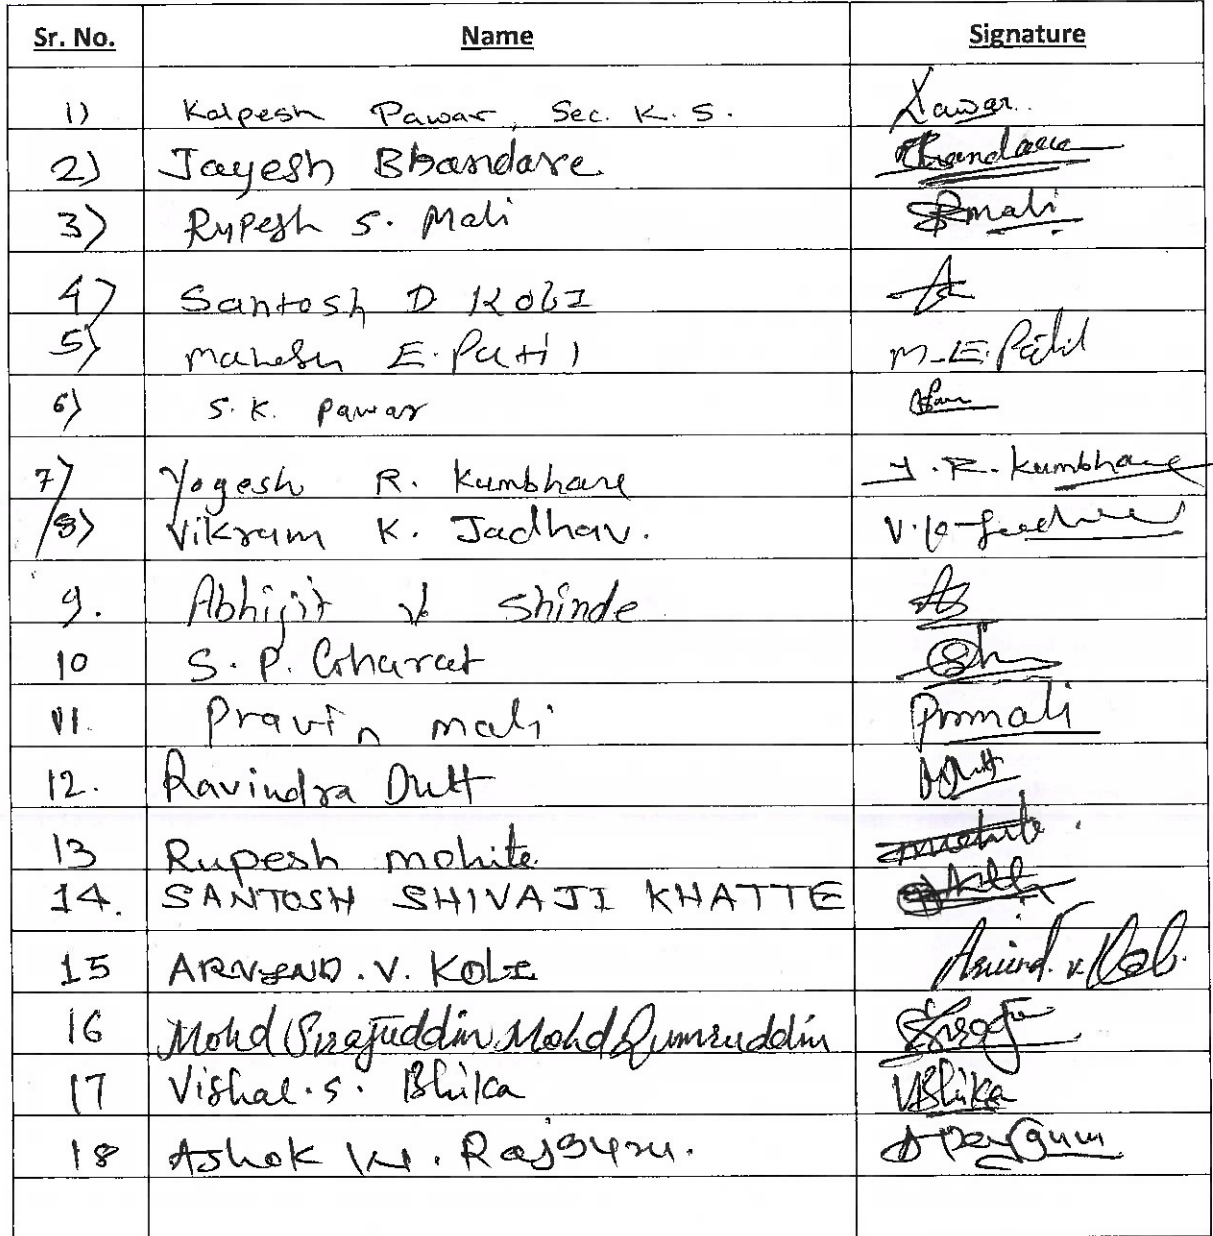 Sr. No. Name Signature
1) Kalpesh Pawar, Sec. K. S. Pawar
2) Jayesh Bhandare Bhandare
3) Rupesh S. Mali Smali
4) Santosh D KOLI
5) Mahesh E. Patil M.E. Patil
6) S. K. Pawar
7) Yogesh R. Kumbhare Y. R. Kumbhare
8) Vikram K. Jadhav. V. K. Jadhav
9. Abhijit V. Shinde
10 S. P. Gharat
11. Pravin mali Pmmali
12. Ravindra Dutt Dutt
13 Rupesh mohite mohite
14. SANTOSH SHIVAJI KHATTE
15 ARVIND. V. KOLI Arvind. v. Koli.
16 Mohd Sirajuddin Mohd Qumruddin Siraj
17 Vishal. S. Bhika VBhika
18 Ashok W. Rajguru. A Rajguru